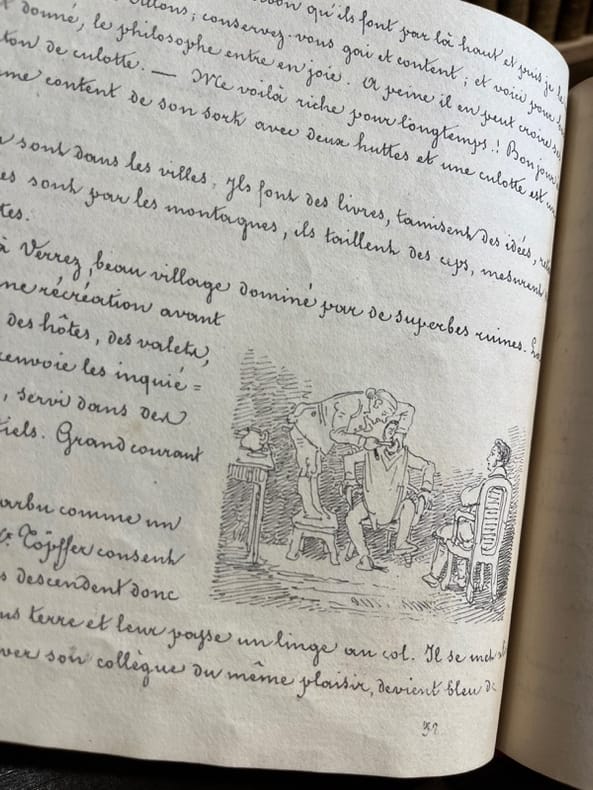 qu'ils font par là haut et puis je
conservez-vous gai et content ; et voici
donné, le philosophe entre en joie. A peine il en peut croire
ton de culotte. — Me voilà riche pour longtemps.! Bonjour
content de son sort avec deux huttes et une culotte est
sont dans les villes, Ils font des livres, tamisent des idées,
sont par les montagnes, ils taillent des ceps, mesurent
à Verrez, beau village dominé par de superbes ruines.
récréation avant
des hôtes, des valets,
renvoie les inquié=
, servi dans des
Grand courant
barbu comme un
Töpffer consent
descendent donc
terre et leur passe un linge au col. Il se met
son collègue du même plaisir, devient bleu de